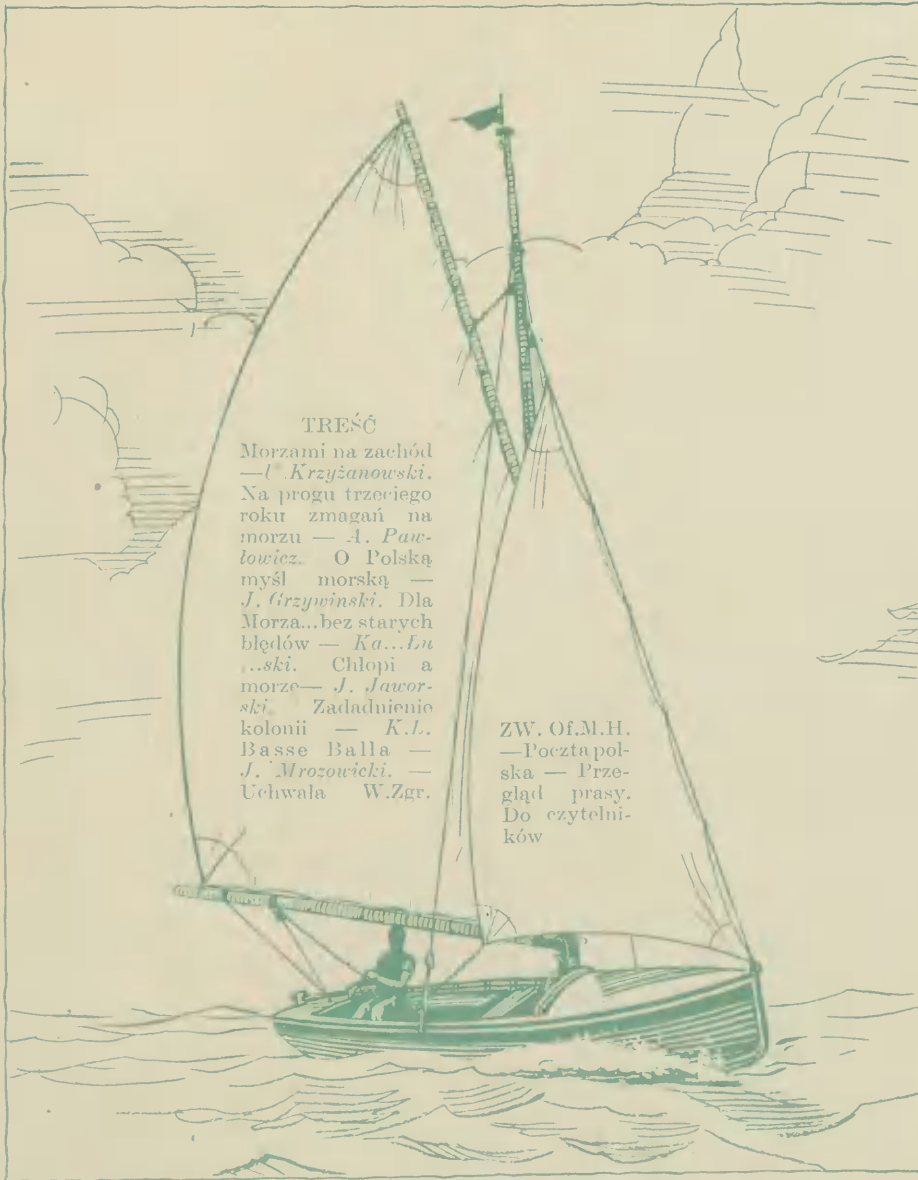 TREŚĆ
Morzami na zachód
— Krzyżanowski.
Na progu trzeciego
roku zmagań na
morzu — A. Paw-
łowicz. O Polską
myśl morską —
J. Grzywinski. Dla
Morza...bez starych
błędów — Ka...Łu
...ski. Chłopi a
morze— J. Jawor-
ski. Zadadnienie
kolonii — K.L.
Basse Balla —
J. Mrozowicki. —
Uchwała W.Zgr.
ZW. Of.M.H.
—Poczta pol-
ska — Prze-
gląd prasy.
Do czytelni-
ków